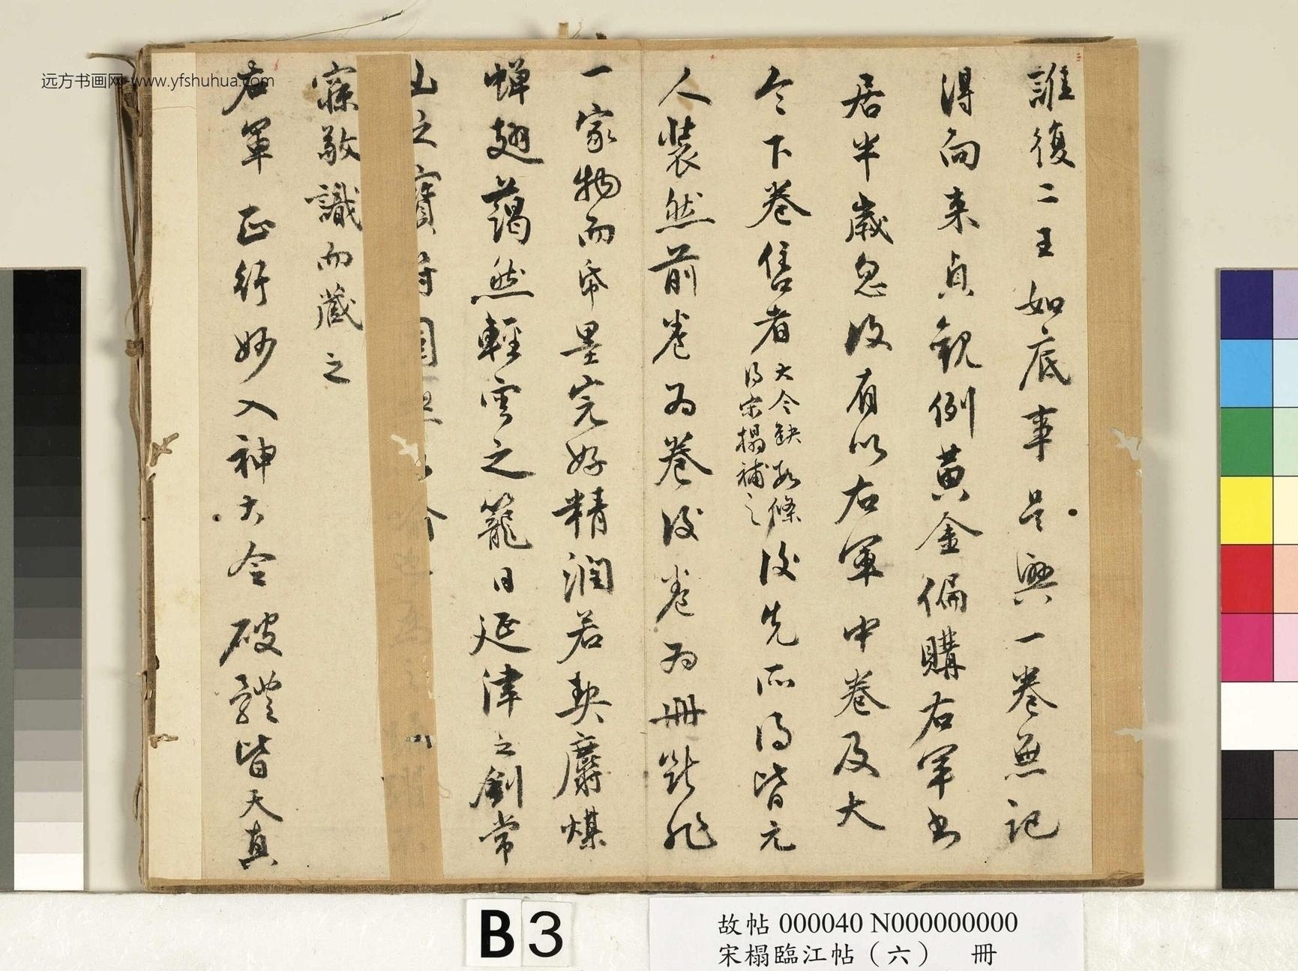 誰復二王如底事是興一卷無記
得向來貞觀例黃金偏購右軍書
居半歲忽復有以右軍中卷及大
令下卷售者大令缺數條得宋搨補之後先所得皆元
人裝然前卷為卷後卷為冊
一家物而帋墨完好精潤若麝煤
蟬翅藹然輕雲之籠日延津之劍常
之寶
寐敬識而藏之
右軍正行妙入神大令破體皆天真
远方书画网-www.yfshuhua.com
B3
故帖 000040 N000000000
宋榻臨江帖（六） 冊